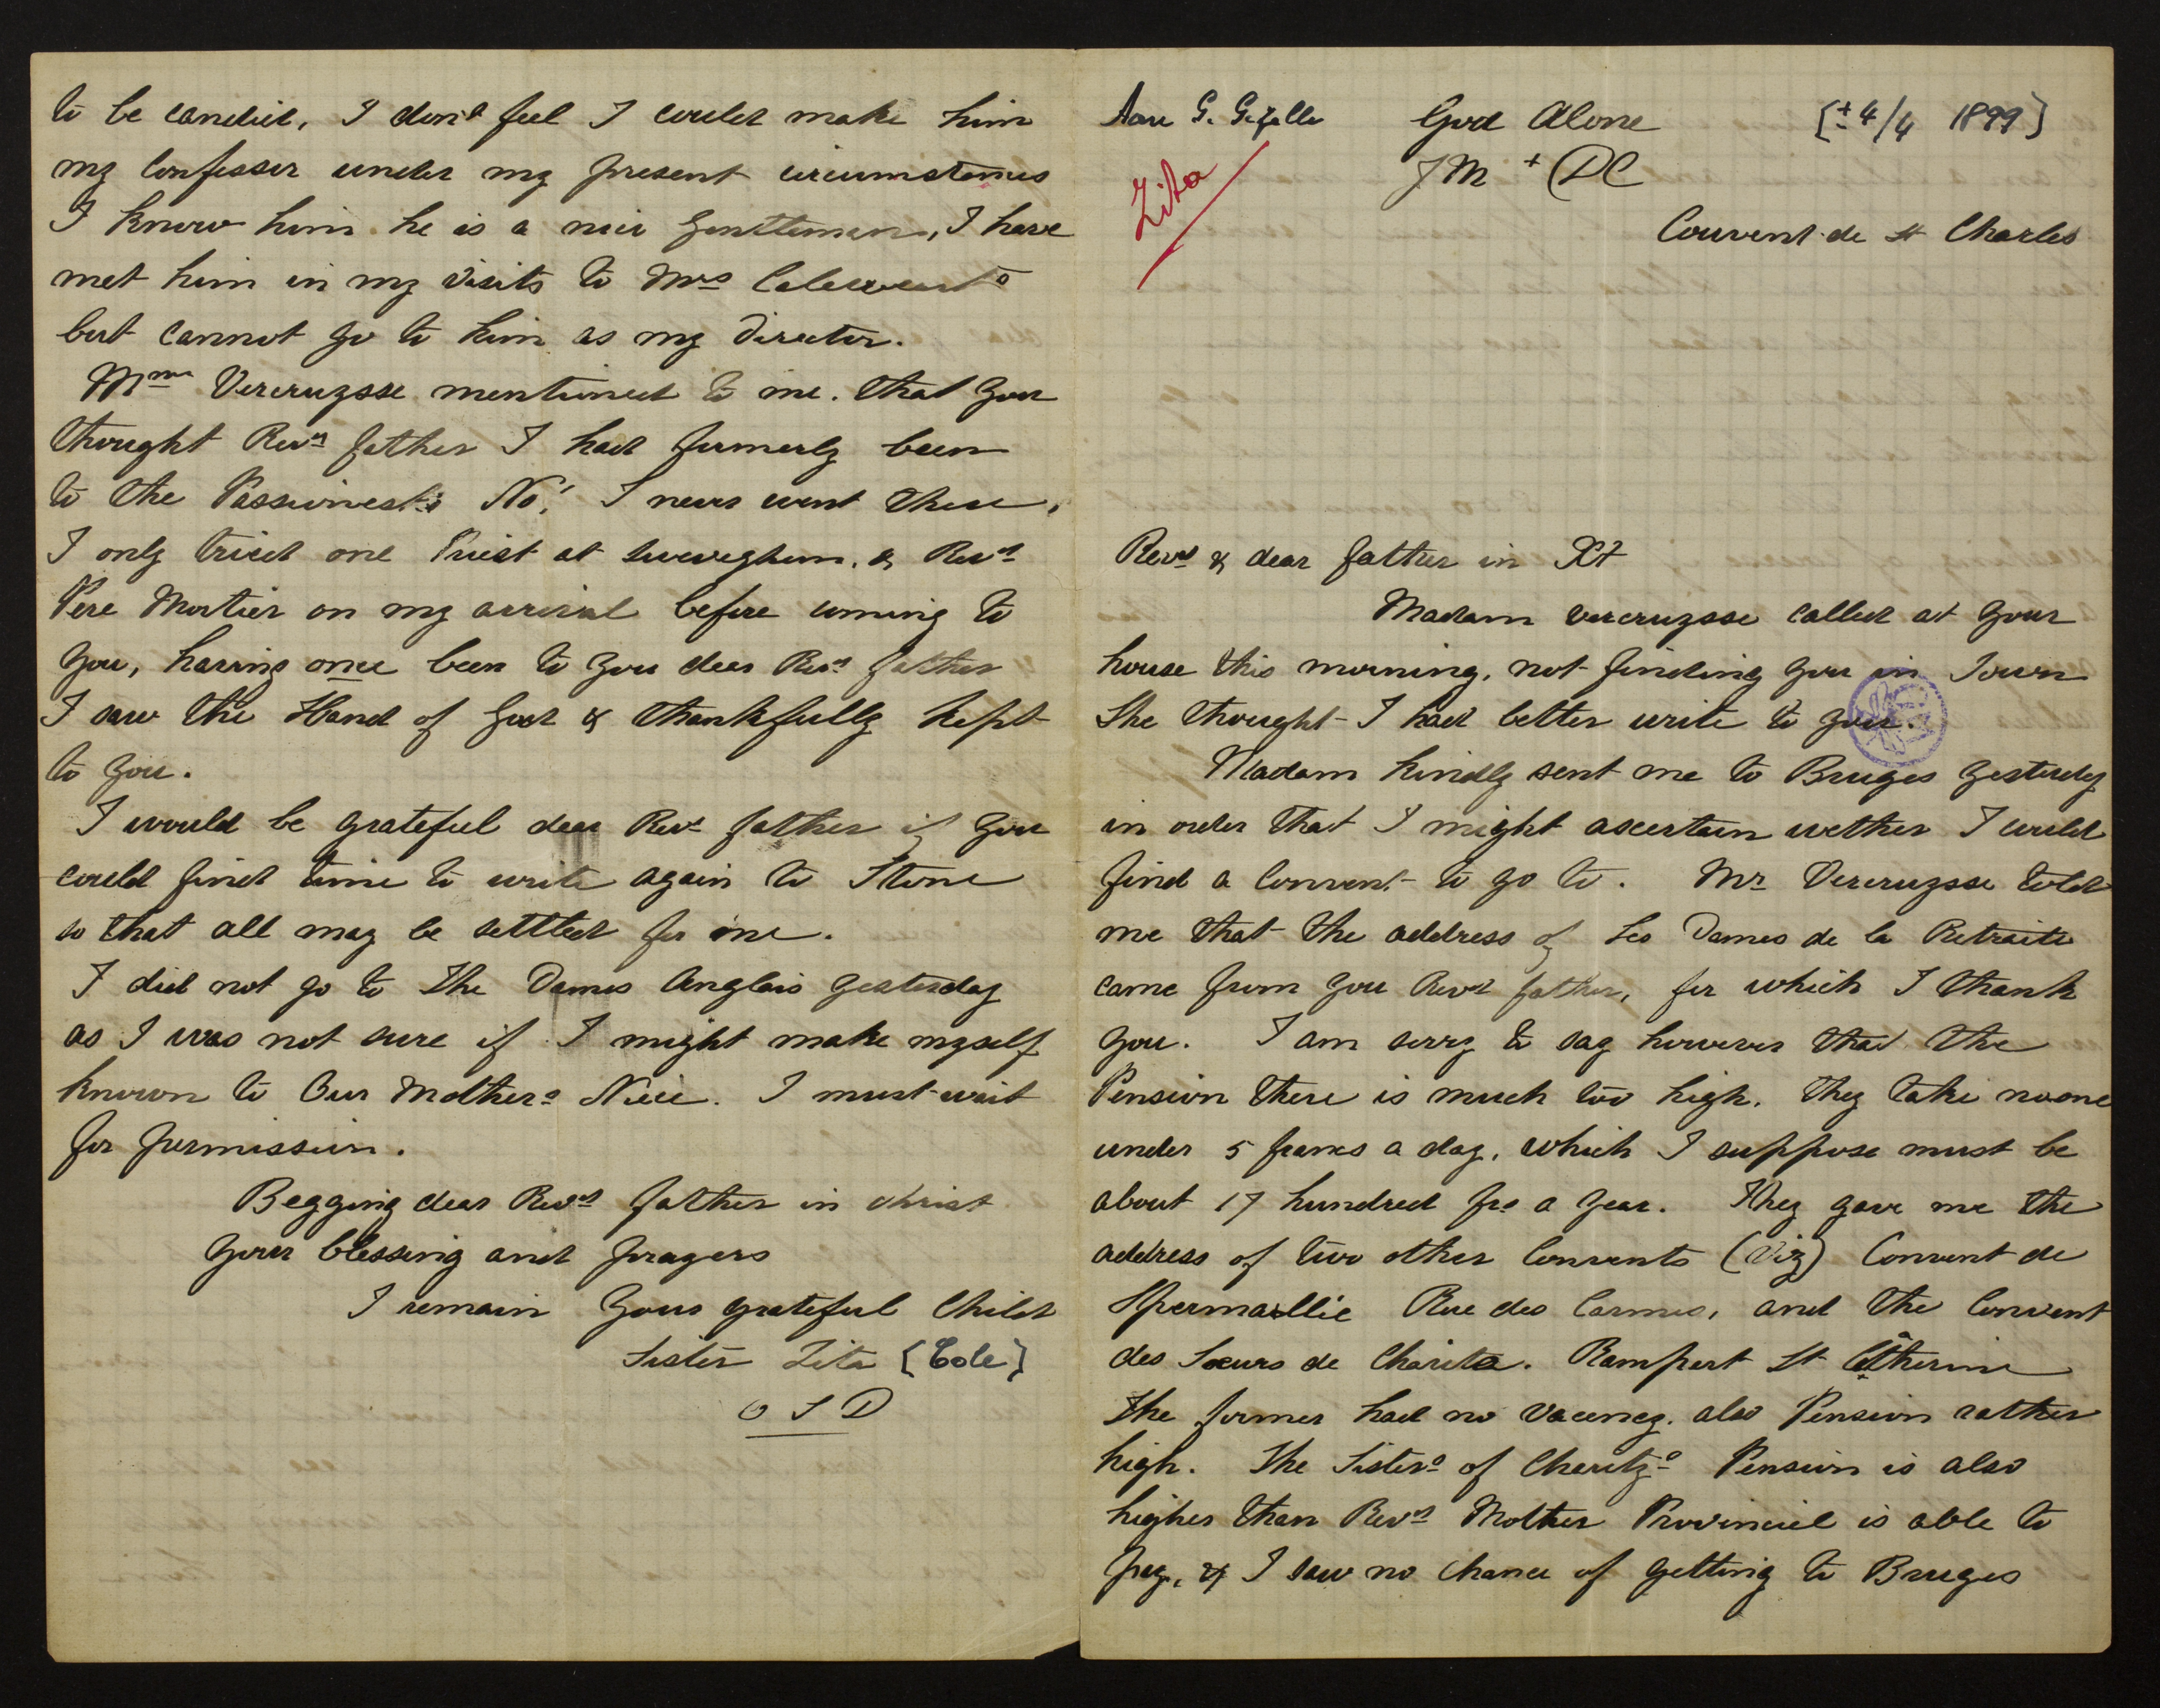 Aan G. Gezelle
God Alone
[± 4/4 1899]
Zita
J M + DC
Couvent de St Charles
Revd & dear father in Xt
Madam Vercruysse called at your
house this morning, not finding you in Town
She thought I had better write to you.
Madam kindly sent me to Bruges yesterday
in order that I might ascertain wether I could
find a Convent to go to. Mr Vercruysse told
me that the address of Les Dames de la Retraite
came from you Revd father, for which I thank
you. I am sorry to say however that the
Pension there is much too high. They take no one
under 5 francs a day, which I suppose must be
about 17 hundred frs a year. They gave me the
address of two other Convents (Viz) Convent de
Spermallie Rue des Carmes, and the Convent
des Sœurs de Charité. Rampart St Catherine
The former had no Vacency. also Pension rather
high. The Sisters of Charity's Pension is also
higher than Revd Mother Provincial is able to
pay, & I saw no chance of getting to Bruges
to be candid, I don't feel I could make him
my Confessor under my present circumstances
I know him he is a nice gentleman, I have
met him in my visits to Mrs
but cannot go to him as my Director.
Mme Vercruysse mentioned to me. that you
thought Revd father I had formerly been
to the Passionests No! I never went there,
I only tried one Priest at Sweveghem, & Revd
Pere Mortier on my arrival before coming to
you, having once been to you dear Revd father
I saw the Hand of God & thankfully kept
to you.
I would be grateful dear Revd father if you
could find time to write again to Stone
so that all may be settled for me.
I did not go to the Dames Anglais yesterday
as I was not sure if I might make myself
known to Our Mothers Niece. I must wait
for permission.
Begging dear Revd father in christ
your blessing and prayers
I remain Your grateful Child
Sister Zita [Cole]
O S D